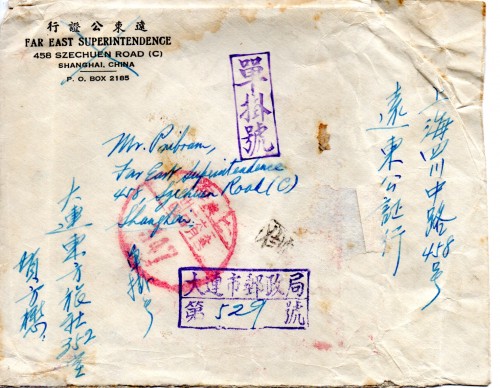 行證公東遠
FAR EAST SUPERINTENDENCE
458 SZECHUEN ROAD (C)
SHANGHAI, CHINA
P. O. BOX 2185
單掛號
Mr. Pribram,
Far East Superintendence
458 Szechuen Road (C)
Shanghai.
上海四川中路458号
遠東公証行
單掛号
大連市郵政局
第529號
大連东方旅社352室